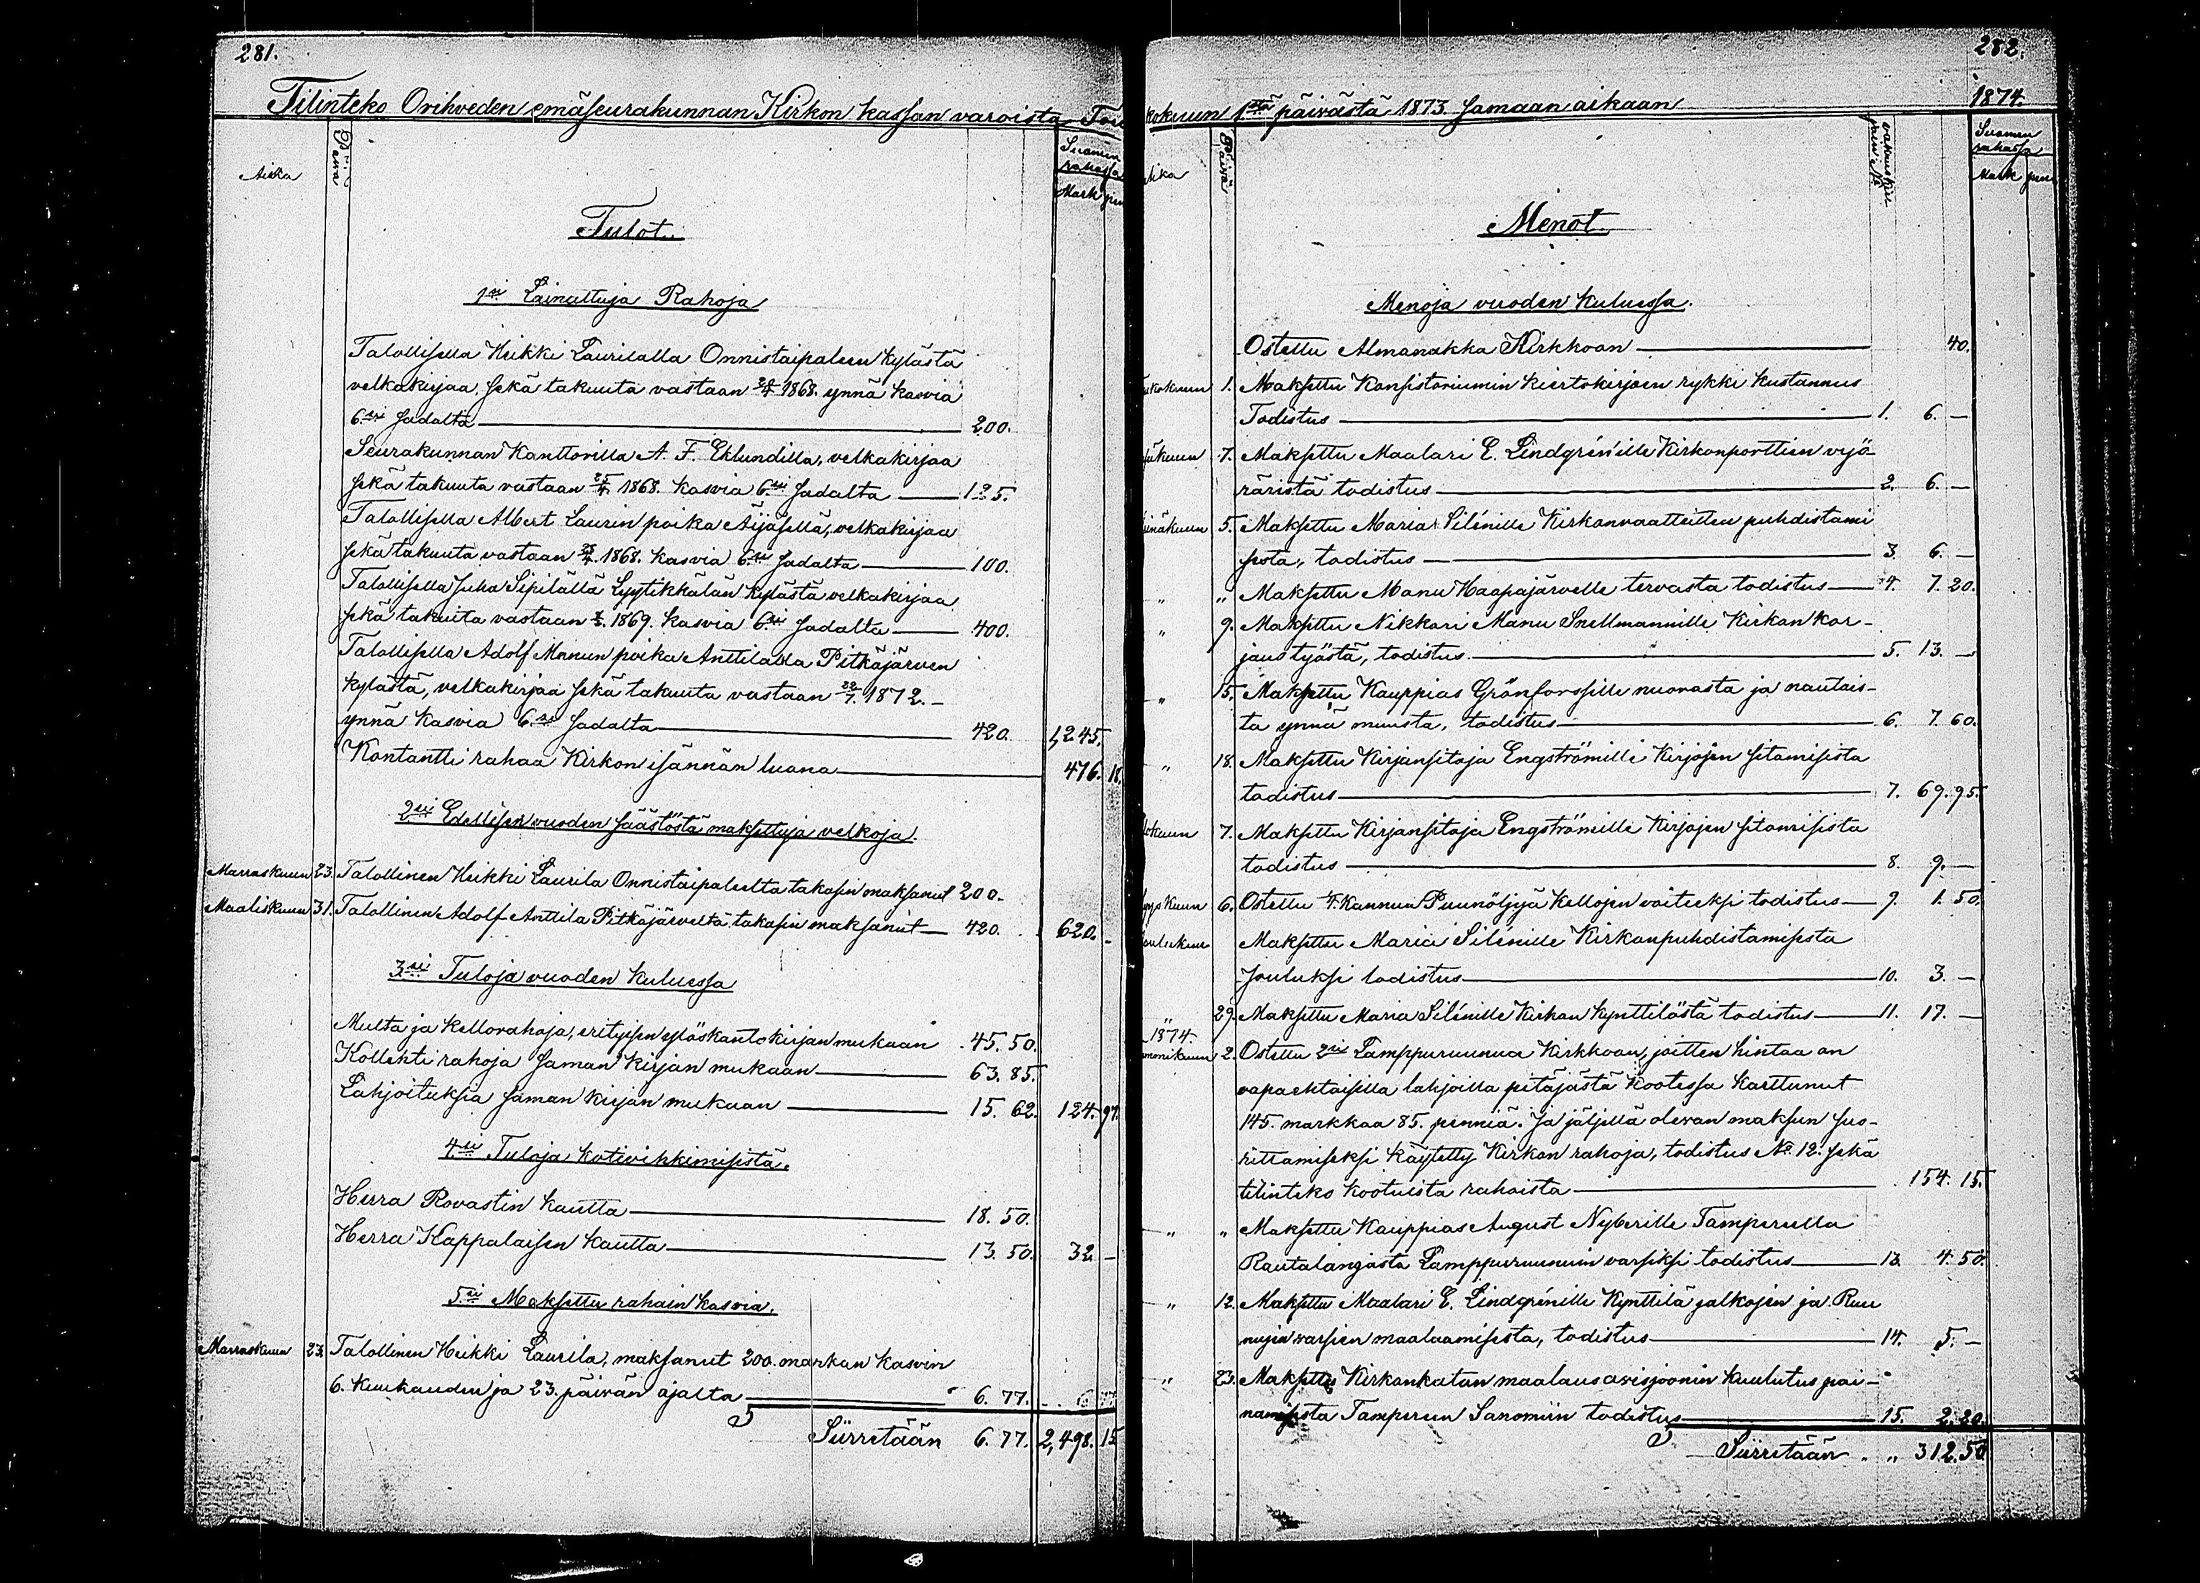 281.
Tilinteko Orihveden emäseurakunnan Kirkon kassan varoista Tou
Aika
Päivä
Suomen
rahassa
Mark pen
Tulot.
1si Lainattuja Rahoja
Talollisella Heikki Laurilalla Onnistaipaleen kylästä
velkakirjaa sekä takuuta vastaan 1868. ynnä kasvia
6si sadalta 200.
Seurakunnan Kanttorilla A. F. Eklundilla, velkakirjaa
sekä takuuta vastaan 25/4 1868. kasvia 6si sadalta 125.
Talollisella Albert Laurin poika Äijäsellä, velkakirjaa
sekä takuuta vastaan 1868. kasvia 6si sadalta 100.
Talollisella Juha Sipilällä Lyytikkälän kylästä velkakirjaa
sekä takuita vastaan 1869. kasvia 6si sadalta 400.
Talollisella Adolf Manun poika Anttilalla Pitkäjärven
kylästä, velkakirjaa sekä takuuta vastaan 22/7. 1872.
ynnä kasvia 6si sadalta 420. 1,245.
Kontantti rahaa Kirkon isännän luona 476. 18.
2si Edellisen vuoden säästöstä maksettuja velkoja.
Marraskuun 23. Talollinen Heikki Laurila Onnistaipaleelta takasin maksanut 200.
Maaliskuun 31. Talollinen Adolf Anttila Pitkäjärveltä takasin maksanut 420. 620. -
3si Tuloja vuoden kuluessa
Multa ja kellorahoja, erityisen ylöskantokirjan mukaan 45. 50.
Kollehti rahoja saman kirjan mukaan 63. 85.
Lahjoituksia saman kirjan mukaan 15. 62. 124. 97.
4si Tuloja kotivihkimisistä.
Herra Rovastin kautta 18. 50.
Herra Kappalaisen kautta 13. 50. 32 -
5si Maksettu rahain kasvia.
Marraskuun 23. Talollinen Heikki Laurila, maksanut 200. markan kasvin
6. kuukauden ja 23. päivän ajalta 6. 77. 6 77
Siirretään 6. 77. 2,498. 15
282.
kokuun 1stä päivästä 1873 samaan aikaan 1874.
Aika
Päivä
Suomen
rahassa
Mark pen
Menot.
Menoja vuoden kuluessa.
Ostettu Almanakka Kirkkoon 40.
ukokuun 1. Maksettu Konsistoriumin kiertokirjoen rykki kustannus
Todistus 1. 6. -
säkuun 7. Maksettu Maalari E. Lindgrén'ille Kirkonporttien vijä-
räristä todistus 2. 6. -
inäkuun 5. Maksettu Maria Silénille Kirkonvaatteitten puhdistami
sesta, todistus 3. 6. -
" " Maksettu Manu Haapajärvelle tervasta todistus 4. 7. 20.
" 9. Maksettu Nikkari Manu Snellmannille Kirkon kor-
jaustyöstä, todistus. 5. 13. -
" 15. Maksettu Kauppias Grönforssille nuorasta ja nautais-
ta ynnä muusta, todistus 6. 7. 60.
" 18. Maksettu Kirjansitoja Engströmille Kirjojen sitomisista
todistus 7. 69. 95.
lokuun 7. Maksettu Kirjansitoja Engströmille Kirjojen sitomisista
todistus 8. 9. -
yyskuun 6. Ostettu 1/4 Kannua Puunöljyä Kellojen voiteeksi todistus 9. 1. 50.
oulukuun Maksettu Maria Silénille Kirkonpuhdistamisesta
Jouluksi todistus 10. 3. -
" 29. Maksettu Maria Silénille Kirkon Kynttilöstä todistus 11. 17. -
1874.
ammikuun 2. Ostettu 2si Lamppuruunua Kirkkoon, joitten hintaa on
vapaehtoisilla lahjoilla pitäjästä kootessa karttunut
145. markkaa 85. penniä. Ja jäljellä olevan maksun suo-
rittamiseksi käytetty Kirkon rahoja, todistus No. 12. sekä
tilinteko kootuista rahoista 154. 15.
" " Maksettu Kauppias August Nyberille Tampereella
Rautalangasta Lamppuruunuin varsiksi todistus 13. 4. 50.
" 12. Maksettu Maalari E. Lindgrénille Kynttilä jalkojen ja Ruu
nujen varsien maalaamisesta, todistus 14. 5. -
" 23. Maksettu Kirkonkaton maalausavisjoonin kuulutus pai-
namisesta Tampereen Sanomiin todistus 15. 2. 20.
Siirretään " 312. 50